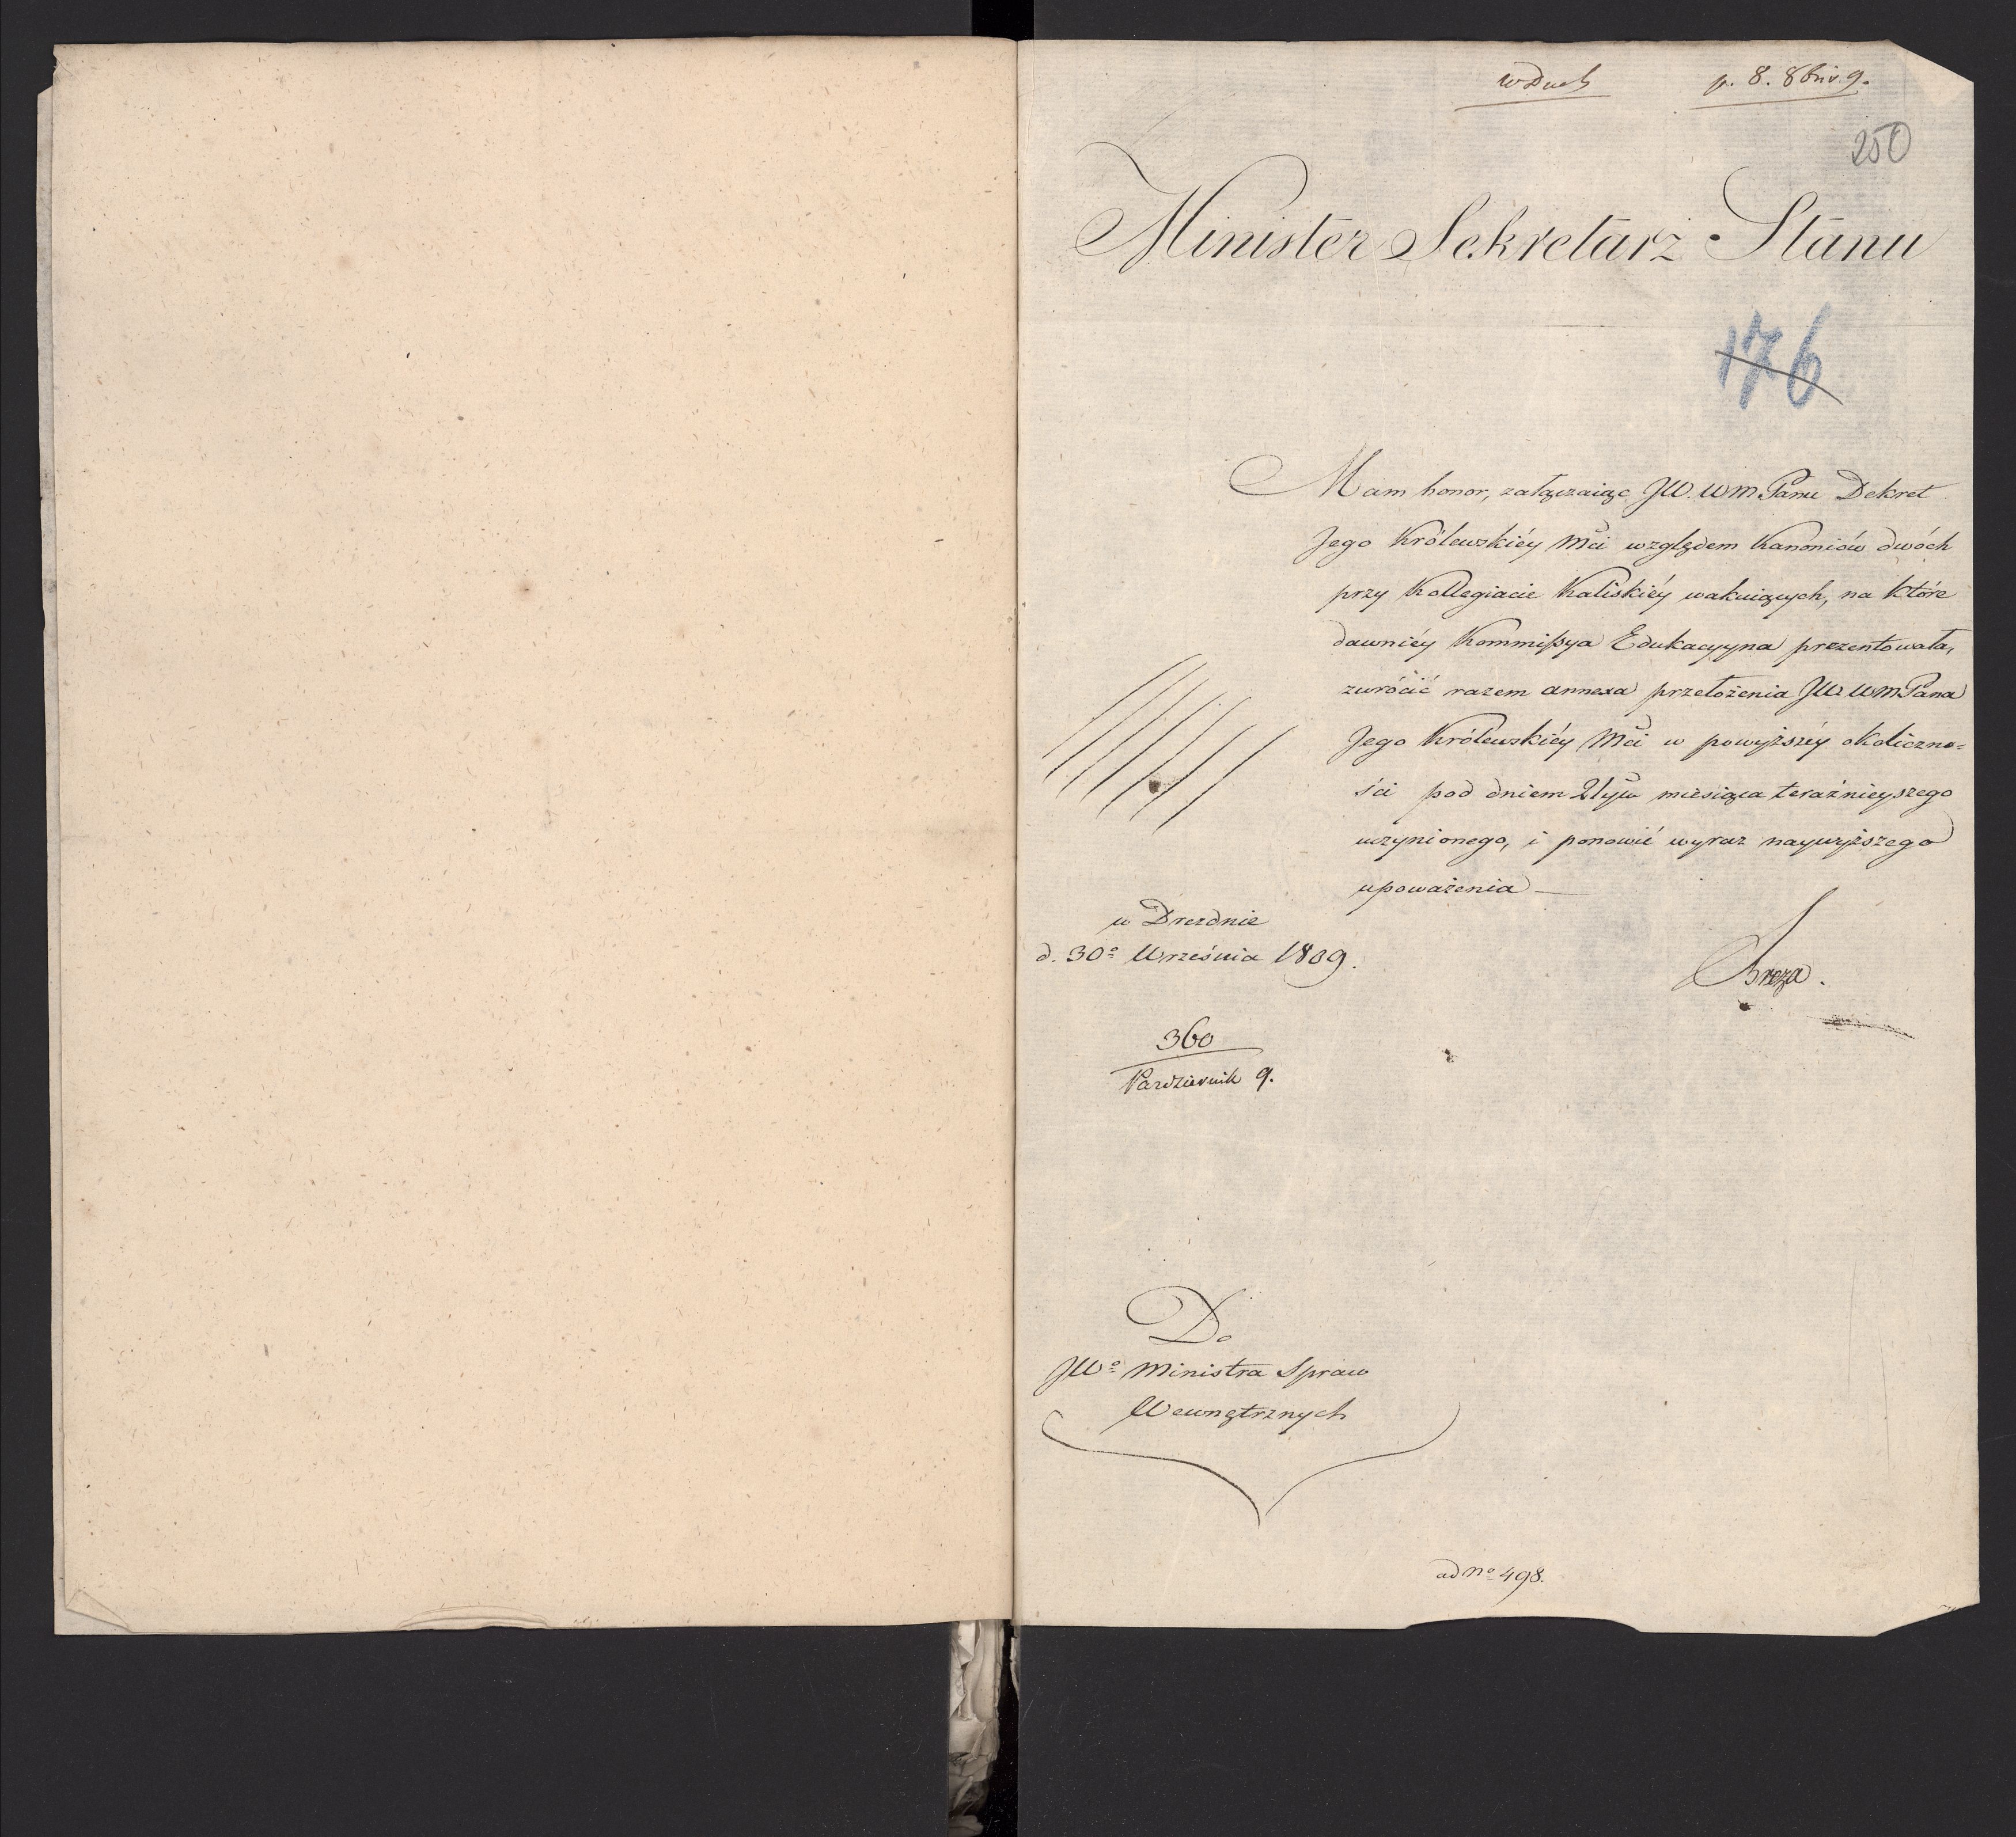 w Duch p. 8. 8briv. 9.
250
Minister Sekretarz Stanu
176
Mam honor, załączaiąc JW. WM Panu Dekret
Jego Królewskiéy Mći względem Kanoniów dwóch
przy Kollegiacie Kaliskiéy wakuiących, na które
dawniéy Kommißya Edukacyyna prezentowała,
zwrócić razem annexa przełożenia JW. WM Pana
Jego Królewskiéy Mći w powyższéy okoliczno=
ści pod dniem 21ym miesiąca teraźnieyszego
uczynionego, i ponowić wyraz naywyższego
upoważenia —
w Dreźdnie
d. 30o Września 1809.
Breza.
360
Pazdziernik 9.
Do
JWo Ministra Spraw
Wewnętrznych
ad No 498.